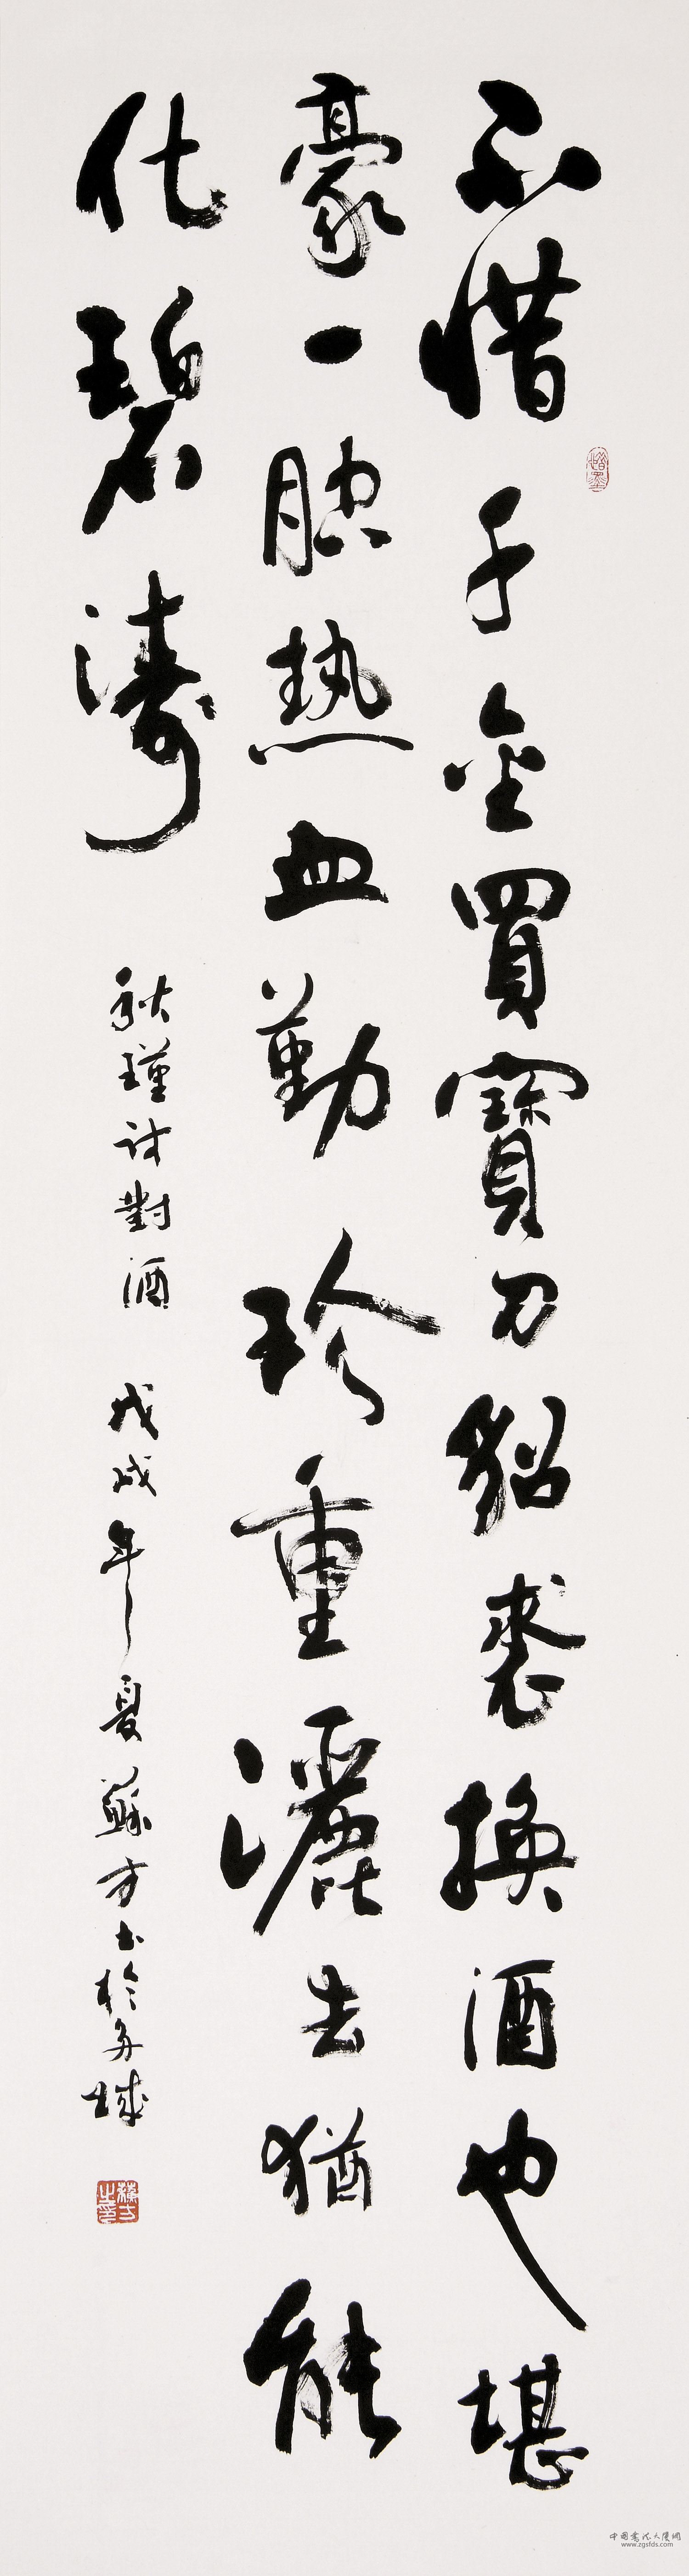 不惜千金買寶刀貂裘換酒也堪
豪一腔热血勤珍重灑去猶能
化碧濤
秋瑾詩對酒 戊戌年夏蘇方書於多城
中国書法大廈網
www.zgsfds.com